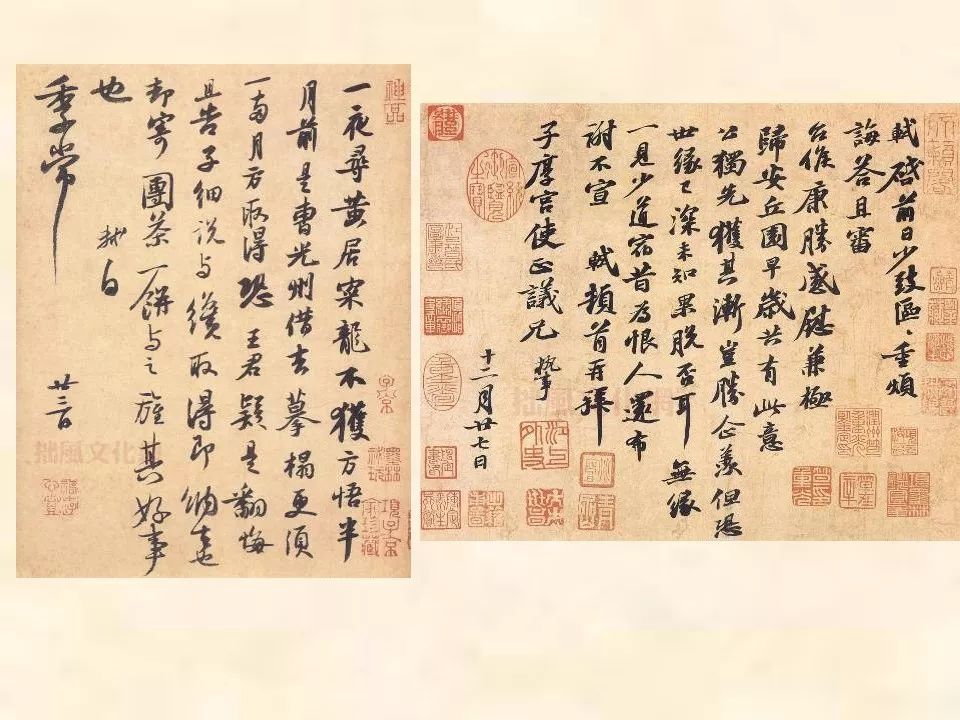 一夜尋黄居寀龍不獲方悟半
月前是曹光州借去摹榻更須
一兩月方取得恐王君疑是翻悔
且告子細説与纔取得即納去也
却寄團茶一餅与之旌其好事
也 軾白
廿三日
季常
軾啓前日少致區、重煩
誨荅且審
台候康勝感慰兼極
歸安丘園早歲共有此意
公獨先獲其漸豈勝企羨但恐
世緣已深未知果脱否耳無緣
一見少道宿昔爲恨人還布
謝不宣 軾頓首再拜
子厚宮使正議兄 執事
十二月廿七日
神品
子京
項子京家珍藏
拙風文化